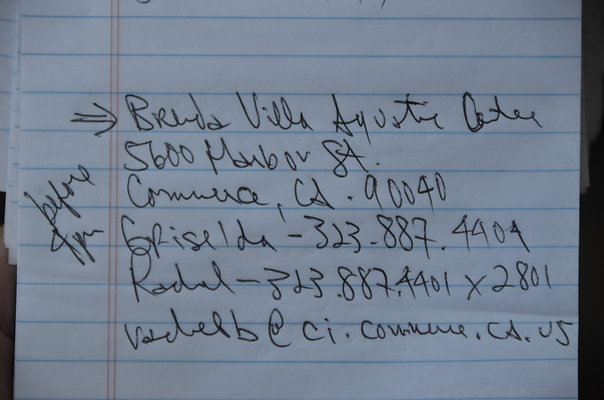 ⇒ Brenda Villa Aquatic Center
5600 Harbor St.
Commerce, CA. 90040
before 4pm
Griselda - 323.887.4404
Rachel - 323.887.4401 x 2801
rachelb@ci.commerce.ca.us